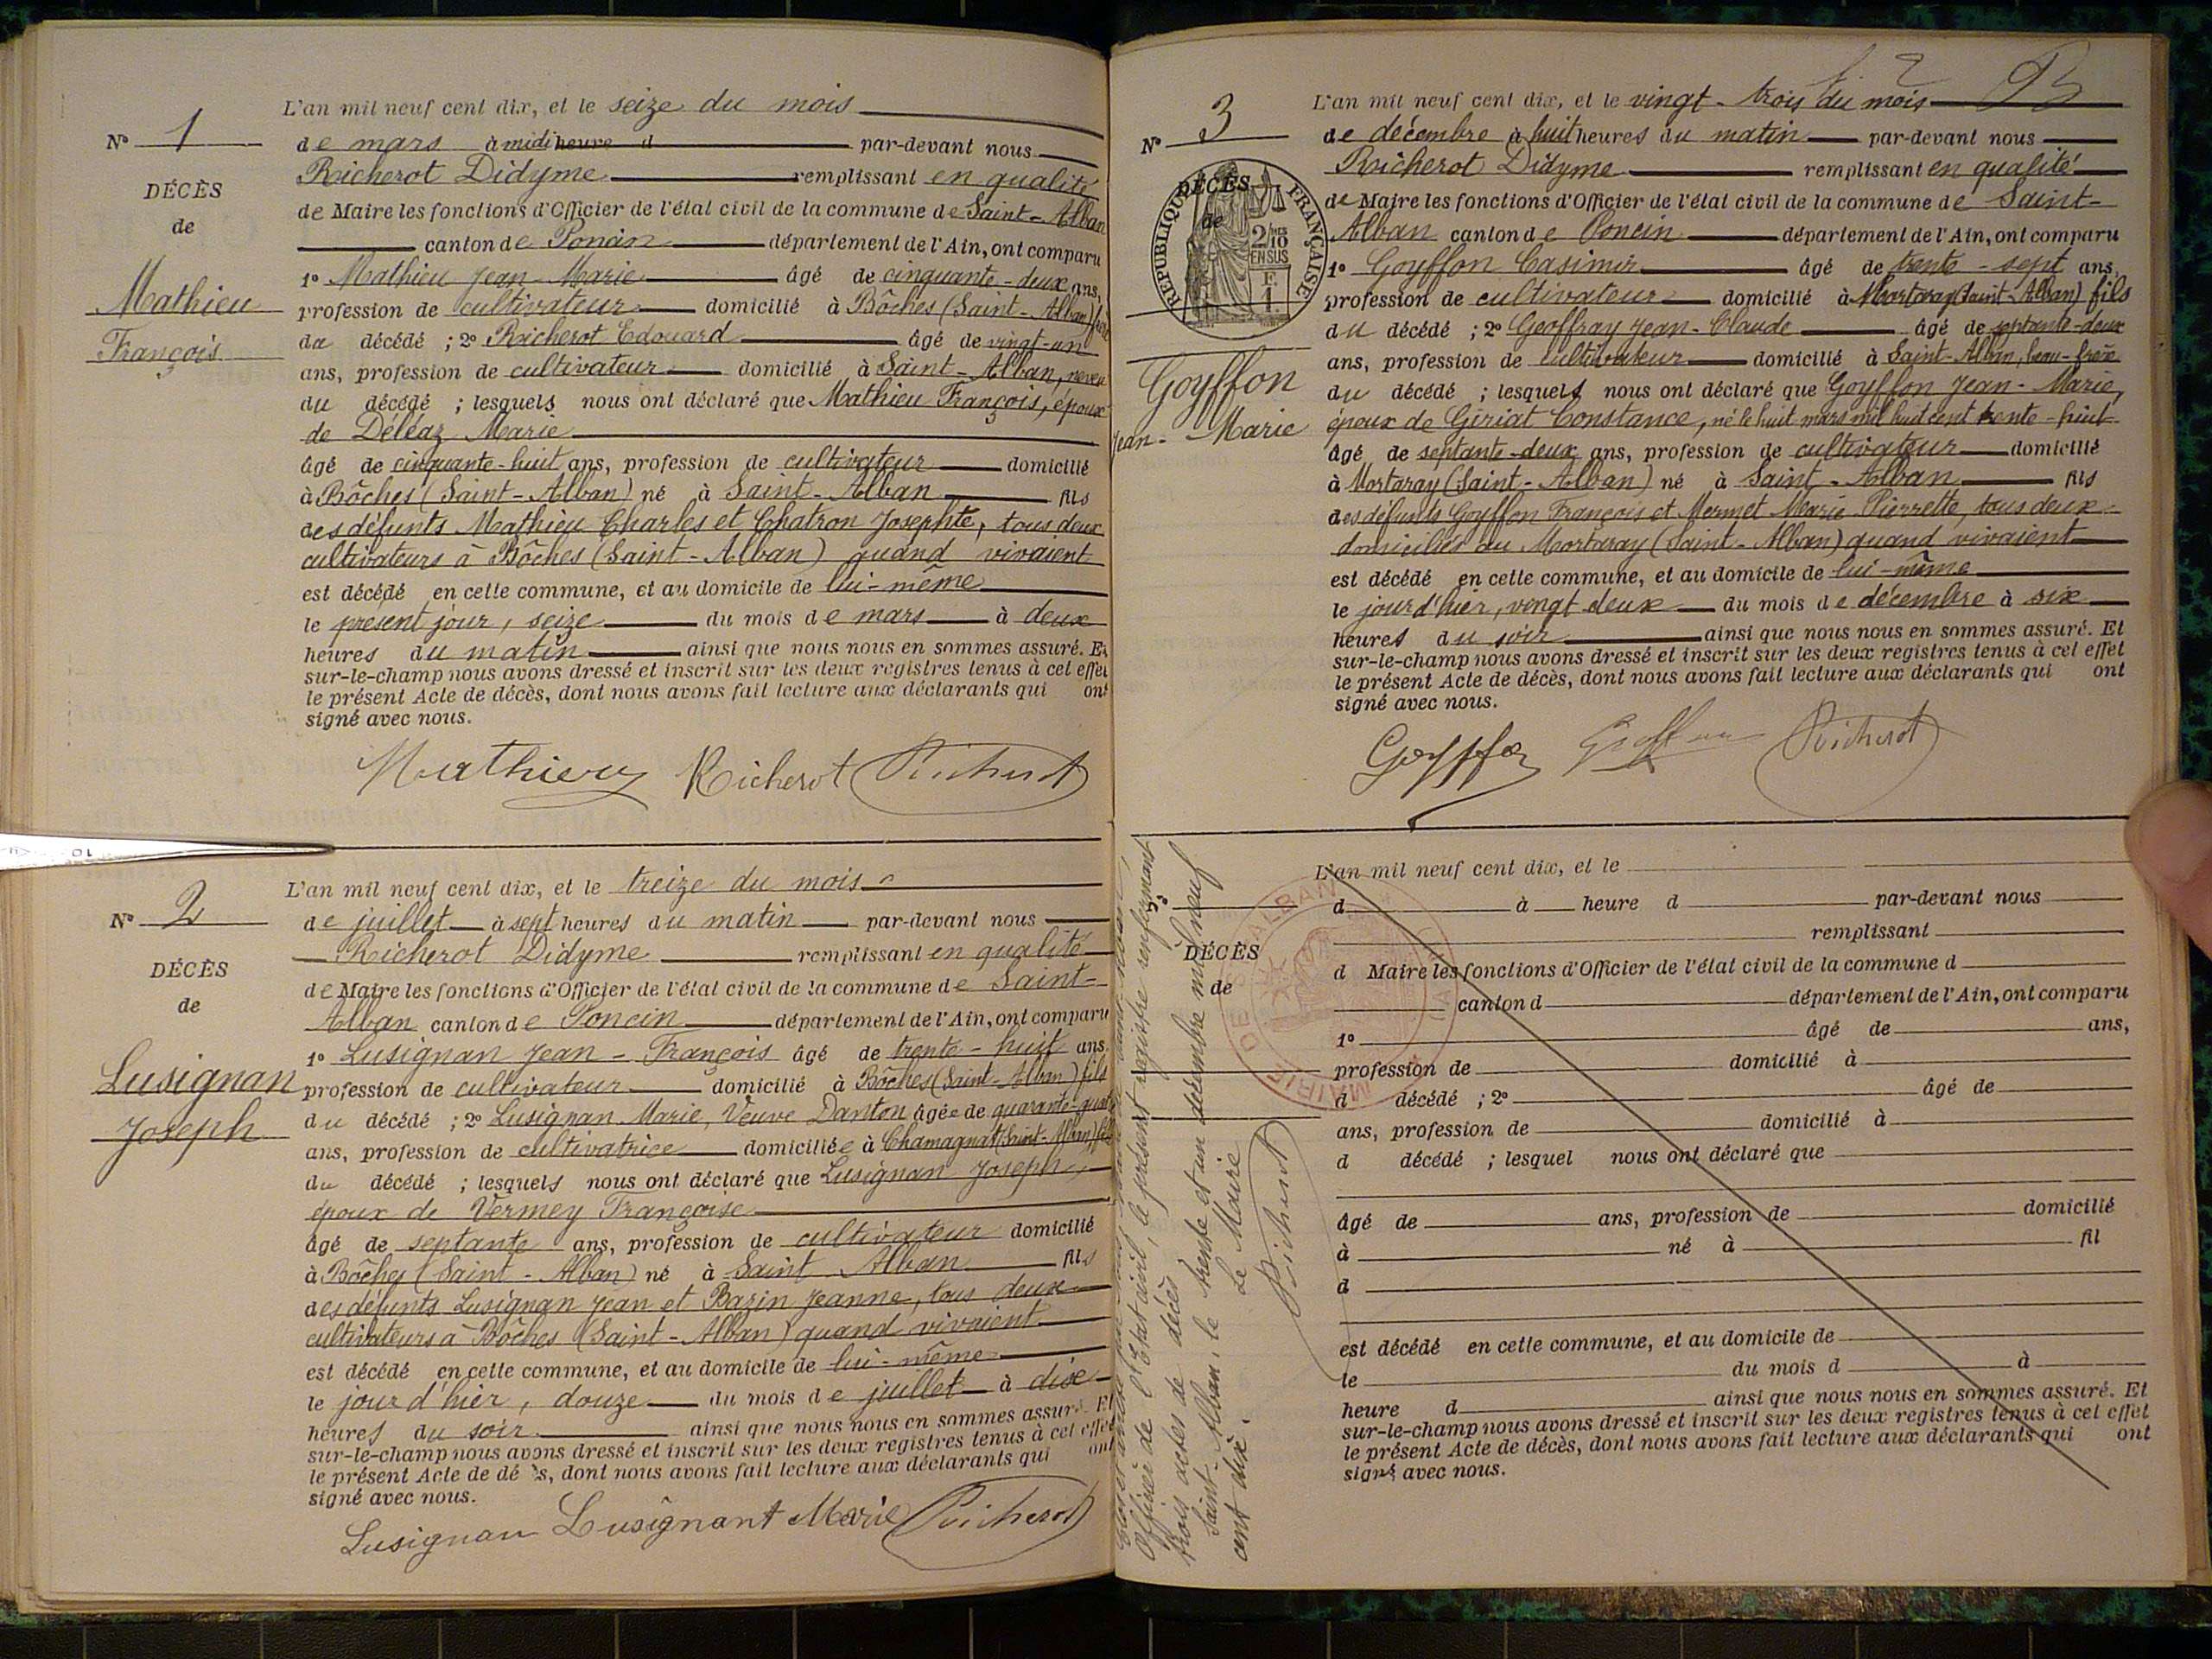 L'an mil neuf cent dix, et le seize du mois
N° 1
de mars à midi heure d par-devant nous
Richerot Didyme remplissant en qualité
DÉCÈS
de Maire les fonctions d'Officier de l'état civil de la commune de Saint-Alban
de
canton de Poncin département de l'Ain, ont comparu
1° Mathieu Jean-Marie âgé de cinquante-deux ans,
Mathieu
profession de cultivateur domicilié à Bôches (Saint-Alban)
François
du décédé ; 2° Richerot Edouard âgé de vingt-un
ans, profession de cultivateur domicilié à Saint-Alban, neveu
du décédé ; lesquels nous ont déclaré que Mathieu François, époux
de Déléaz Marie
âgé de cinquante-huit ans, profession de cultivateur domicilié
à Bôches (Saint-Alban) né à Saint-Alban fils
des défunts Mathieu Charles et Chatron Josephte, tous deux
cultivateurs à Bôches (Saint-Alban) quand vivaient
est décédé en cette commune, et au domicile de lui-même
le présent jour, seize du mois de mars à deux
heures du matin ainsi que nous nous en sommes assuré. Et
sur-le-champ nous avons dressé et inscrit sur les deux registres tenus à cet effet
le présent Acte de décès, dont nous avons fait lecture aux déclarants qui ont
signé avec nous.
Mathieu Richerot Richerot
L'an mil neuf cent dix, et le treize du mois
N° 2
de juillet à sept heures du matin par-devant nous
Richerot Didyme remplissant en qualité
DÉCÈS
de Maire les fonctions d'Officier de l'état civil de la commune de Saint-
de
Alban canton de Poncin département de l'Ain, ont comparu
1° Lusignan Jean-François âgé de trente-huit ans,
Lusignan
profession de cultivateur domicilié à Bôches (Saint-Alban) fils
Joseph
du décédé ; 2° Lusignan Marie, Veuve Danton âgée de quarante-
ans, profession de cultivatrice domiciliée à Chamagnat (Saint-Alban)
du décédé ; lesquels nous ont déclaré que Lusignan Joseph,
époux de Vermey Françoise
âgé de septante ans, profession de cultivateur domicilié
à Bôches (Saint-Alban) né à Saint Alban fils
des défunts Lusignan Jean et Bazin Jeanne, tous deux
cultivateurs à Bôches (Saint-Alban) quand vivaient
est décédé en cette commune, et au domicile de lui-même
le jour d'hier, douze du mois de juillet à dix
heures du soir ainsi que nous nous en sommes assuré. Et
sur-le-champ nous avons dressé et inscrit sur les deux registres tenus à cet effet
le présent Acte de dé s, dont nous avons fait lecture aux déclarants qui ont
signé avec nous.
Lusignan Lusignant Marie Richerot
L'an mil neuf cent dix, et le vingt-trois du mois
N° 3
de décembre à huit heures du matin par-devant nous
Richerot Didyme remplissant en qualité
DÉCÈS
de Maire les fonctions d'Officier de l'état civil de la commune de Saint-
de
Alban canton de Poncin département de l'Ain, ont comparu
RÉPUBLIQUE FRANÇAISE
2/10 EN SUS
1° Goyffon Casimir âgé de trente-sept ans,
profession de cultivateur domicilié à Mortaray (Saint-Alban) fils
du décédé ; 2° Geoffray Jean-Claude âgé de septante-deux
ans, profession de cultivateur domicilié à Saint-Alban, beau-frère
Goyffon
du décédé ; lesquels nous ont déclaré que Goyffon Jean-Marie,
Jean-Marie
époux de Giriat Constance, né le huit mars mil huit cent trente-huit
âgé de septante-deux ans, profession de cultivateur domicilié
à Mortaray (Saint-Alban) né à Saint-Alban fils
des défunts Goyffon François et Mermet Marie Pierrette, tous deux
domiciliés au Mortaray (Saint-Alban) quand vivaient
est décédé en cette commune, et au domicile de lui-même
le jour d'hier, vingt deux du mois de décembre à six
heures du soir ainsi que nous nous en sommes assuré. Et
sur-le-champ nous avons dressé et inscrit sur les deux registres tenus à cet effet
le présent Acte de décès, dont nous avons fait lecture aux déclarants qui ont
signé avec nous.
Goyffon Richerot
L'an mil neuf cent dix, et le
N°
d à heure d par-devant nous
remplissant
DÉCÈS
d Maire les fonctions d'Officier de l'état civil de la commune d
de
canton d département de l'Ain, ont comparu
1° âgé de ans,
profession de domicilié à
d décédé ; 2° âgé de
ans, profession de domicilié à
d décédé ; lesquel nous ont déclaré que
âgé de ans, profession de domicilié
à né à fil
d
est décédé en cette commune, et au domicile de
le du mois d à
heure d ainsi que nous nous en sommes assuré. Et
sur-le-champ nous avons dressé et inscrit sur les deux registres tenus à cet effet
le présent Acte de décès, dont nous avons fait lecture aux déclarants qui ont
signé avec nous.
MAIRIE DE ALBAN
Officier de l'état civil, le présent registre renfermant
trois actes de décès
Saint-Alban, le trente et un décembre mil neuf
cent dix.
Le Maire
Richerot